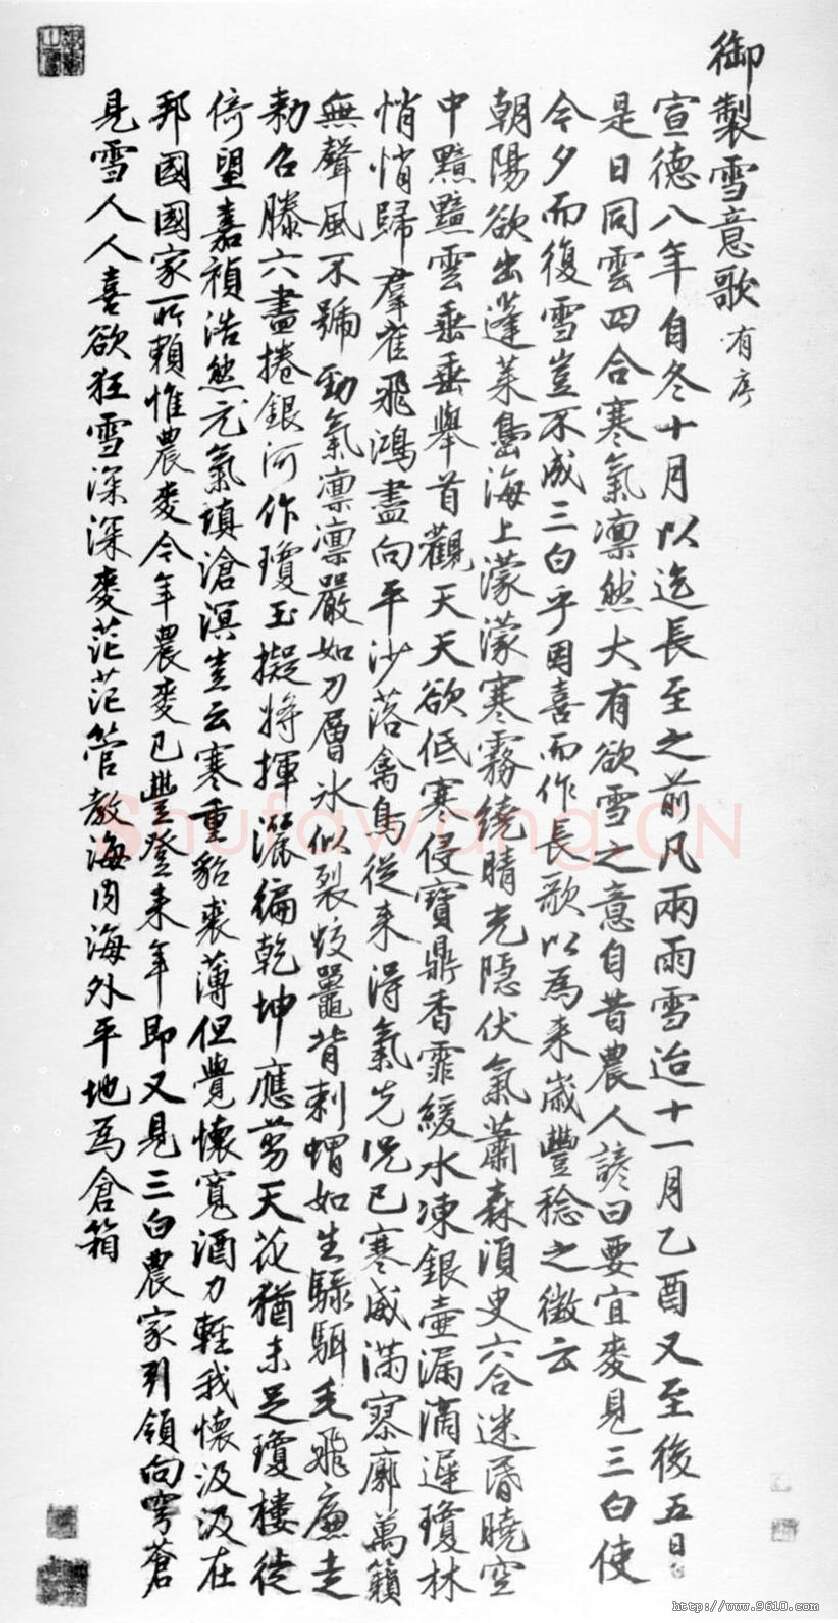 御製雪意歌 有序
宣德八年自冬十月以迄長至之前凡兩雨雪迨十一月乙酉又至後五日
是日同雲四合寒氣凛然大有欲雪之意自昔農人諺曰要宜麥見三白使
今夕而復雪豈不成三白乎因喜而作長歌以為来歲豐稔之徵云
朝陽欲出蓬莱島海上濛濛寒霧繞晴光隱伏氣蕭森須史六合迷昏曉空
中黯黯雲垂垂舉首觀天天欲低寒侵寶鼎香霏緩水凍銀壺漏滴遲瓊林
悄悄歸羣雀飛鴻盡向平沙落禽鳥從来得氣先况已寒威滿寥廓萬籟
無聲風不號勁氣凛凛嚴如刀層氷似裂蛟鼉背刺蝟如生騄駬毛飛廉走
勅召滕六盡捲銀河作瓊玉擬將揮灑徧乾坤應剪天花猶未足瓊樓徒
倚望嘉禎浩然元氣填滄溟豈云寒重貂裘薄但覺懷寬酒力輕我懷汲汲在
邦國國家所賴惟農麥今年農麥已豐登来年即又見三白農家引領向穹蒼
見雪人人喜欲狂雪深深麥茫茫管教海內海外平地為倉箱
Shufawang.CN
http://www.9610.com